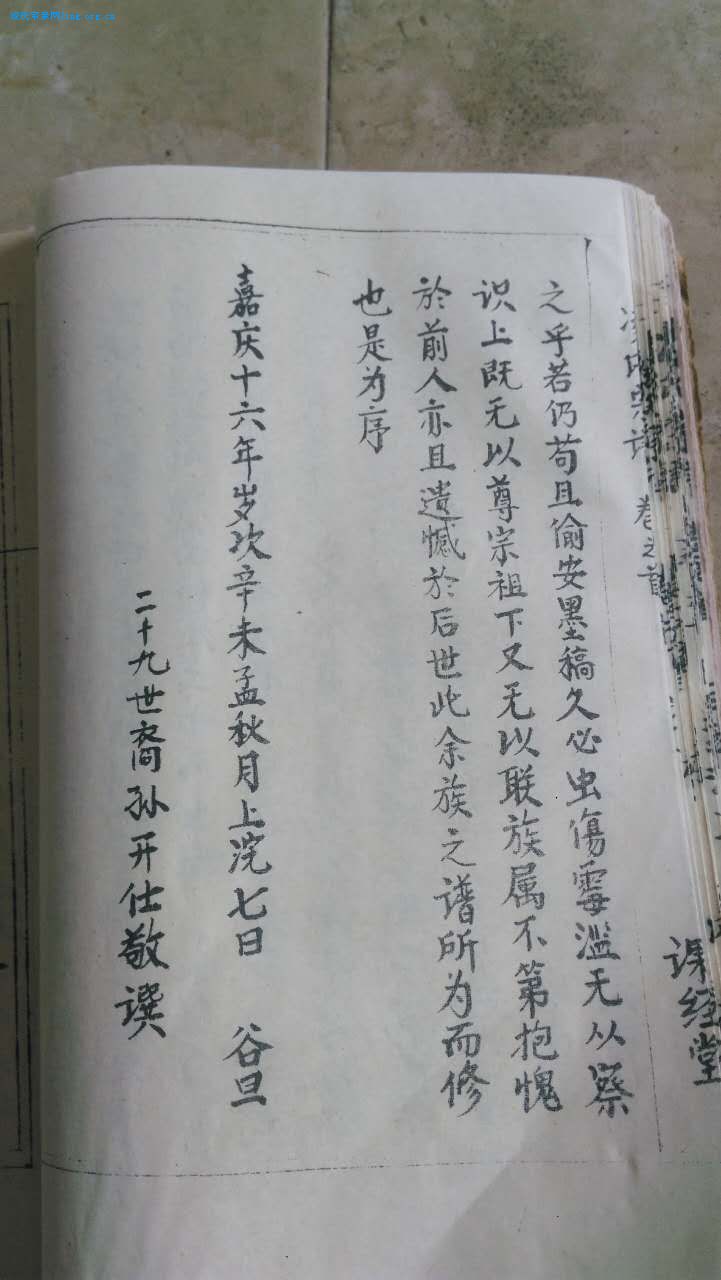 之乎若仍苟且偷安墨稿久必虫傷霉滥无从察
识上既无以尊宗祖下又无以联族属不第抱愧
於前人亦且遗憾於后世此余族之谱所为而修
也是为序
嘉庆十六年岁次辛未孟秋月上浣七日 谷旦
二十九世裔孙开仕敬譔
宗谱 卷之首
课经堂